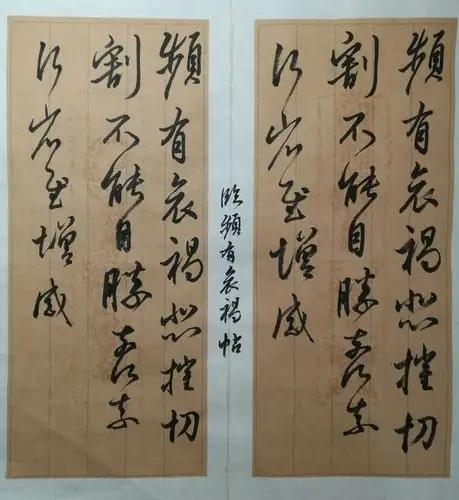 頻有哀禍悲摧切
割不能自勝奈何奈
何省慰增感
臨頻有哀禍帖
頻有哀禍悲摧切
割不能自勝奈何奈
何省慰增感